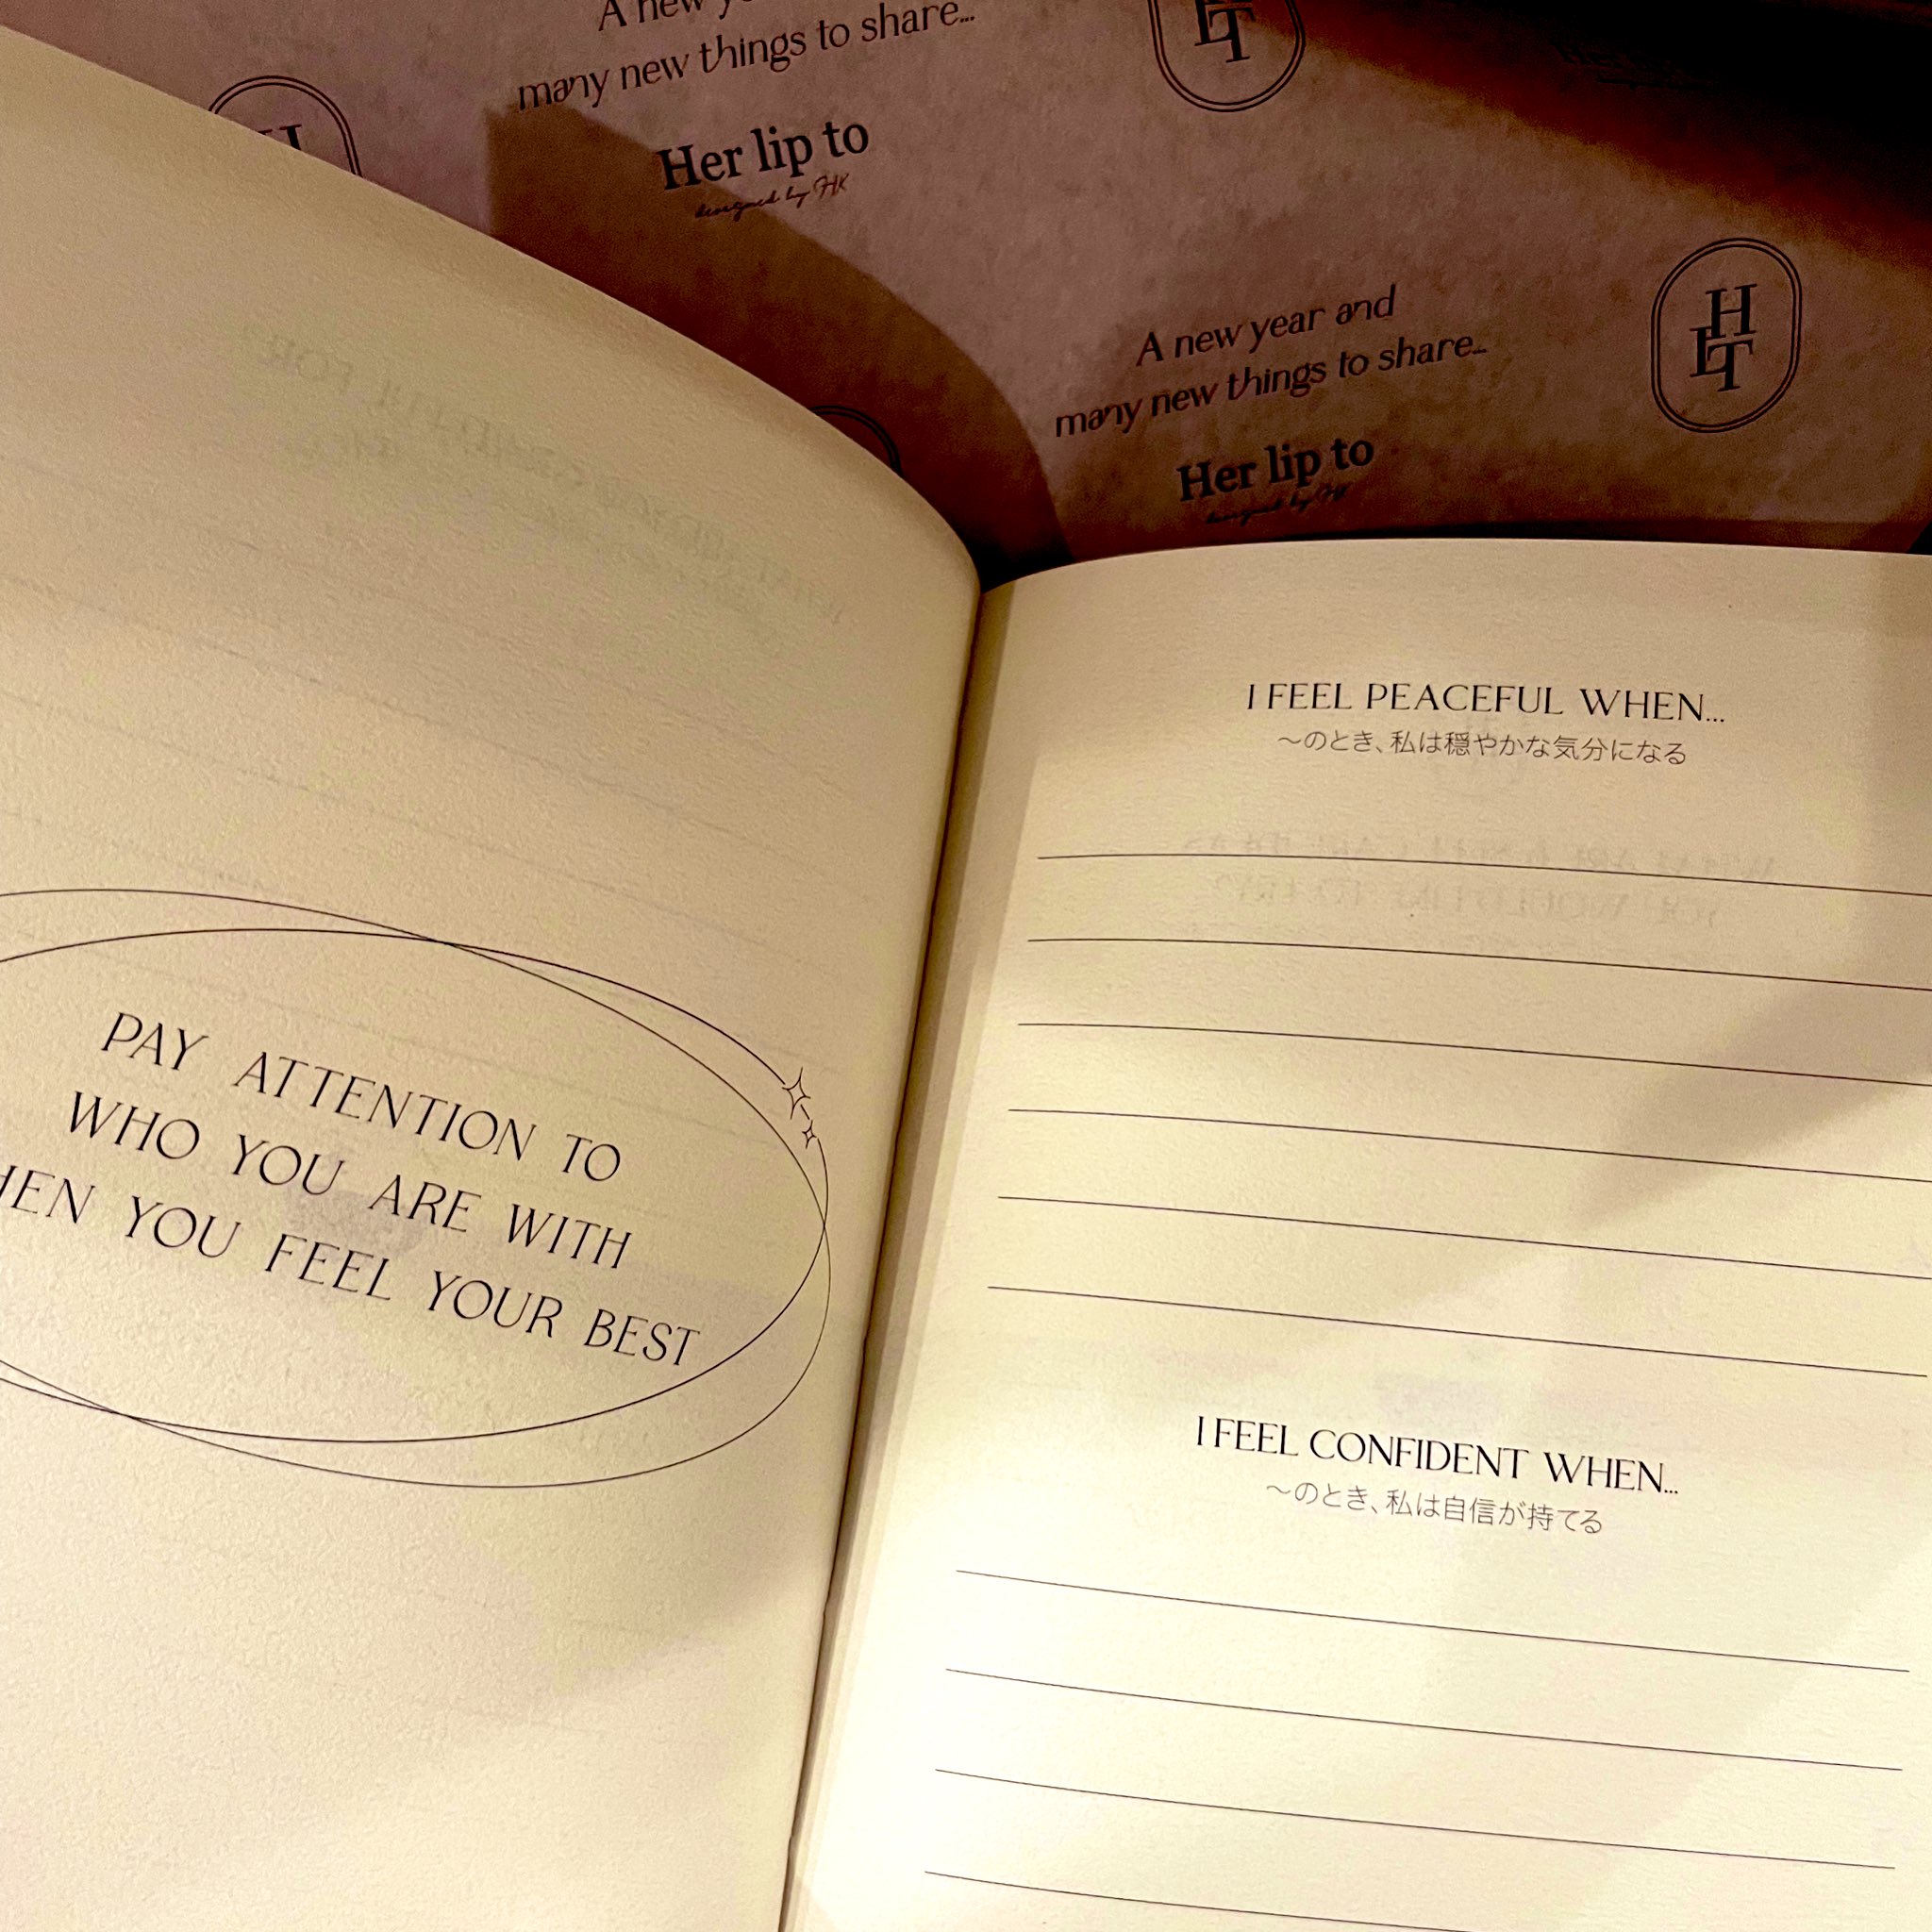 A new
many new things to share...
Her lip to
designed by HK
HLT
A new year and
many new things to share...
Her lip to
designed by HK
HLT
H
PAY ATTENTION TO
WHO YOU ARE WITH
HEN YOU FEEL YOUR BEST
I FEEL PEACEFUL WHEN...
～のとき、私は穏やかな気分になる
I FEEL CONFIDENT WHEN...
～のとき、私は自信が持てる